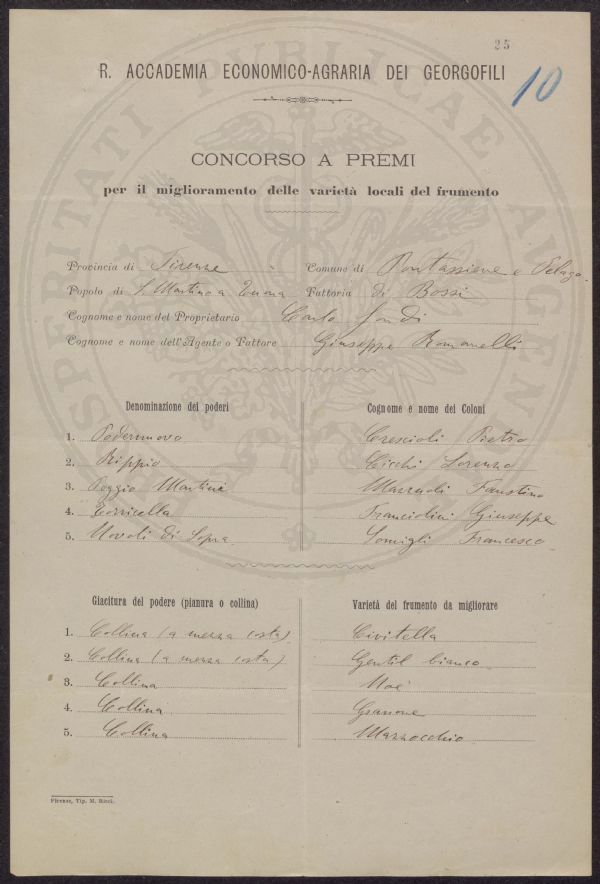 25
10
R. ACCADEMIA ECONOMICO-AGRARIA DEI GEORGOFILI
CONCORSO A PREMI
per il miglioramento delle varietà locali del frumento
Provincia di Firenze Comune di Pontassieve e Pelago
Popolo di S. Martino a Fattoria di Bossi
Cognome e nome del Proprietario Carlo Gondi
Cognome e nome dell'Agente o Fattore Giuseppe Romanelli
Denominazione dei poderi Cognome e nome dei Coloni
1. Podernuovo Crescioli Pietro
2. Rippio Cicchi Lorenzo
3. Poggio Martini Faustino
4. Torricella Franciolini Giuseppe
5. Novoli di Sopra Somigli Francesco
Giacitura del podere (pianura o collina) Varietà del frumento da migliorare
1. Collina (a mezza costa) Civitella
2. Collina (a mezza costa) Gentil bianco
3. Collina Noè
4. Collina Granone
5. Collina Mazzocchio
Firenze, Tip. M. Ricci.
PROSPERITATI PUBLICAE AUGENDAE